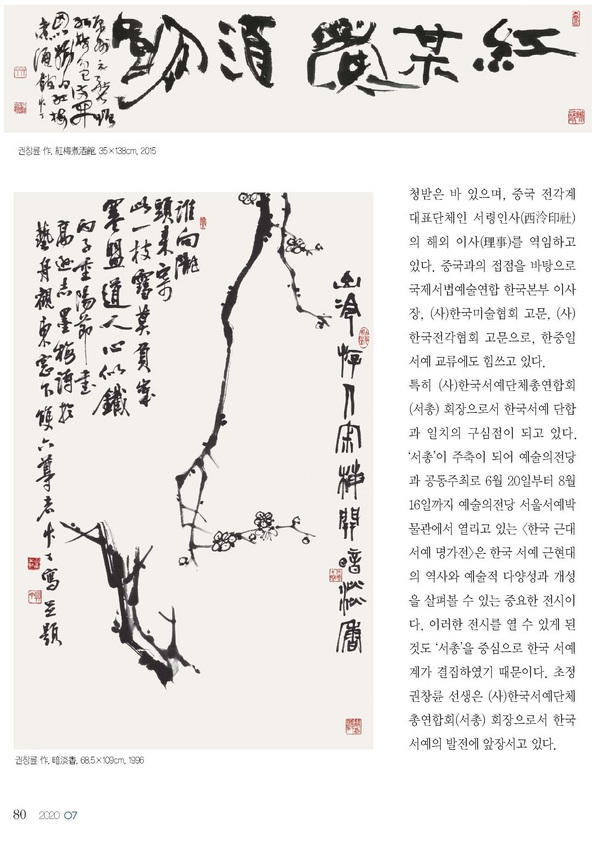 권창륜 作, 紅梅煮酒館, 35×138cm, 2015
誰向隴
頭來寄
此一枝露莫負歲
寒盟道人心似鐵
丙子重陽節畫
墨梅詩於
藝舟觀東窓下雙六尊者
권창륜 作, 暗淡香, 68.5×109cm, 1996
청받은 바 있으며, 중국 전각계
대표단체인 서령인사(西泠印社)
의 해외 이사(理事)를 역임하고
있다. 중국과의 접점을 바탕으로
국제서법예술연합 한국본부 이사
장, (사)한국미술협회 고문, (사)
한국전각협회 고문으로, 한중일
서예 교류에도 힘쓰고 있다.
특히 (사)한국서예단체총연합회
(서총) 회장으로서 한국서예 단합
과 일치의 구심점이 되고 있다.
‘서총’이 주축이 되어 예술의전당
과 공동주최로 6월 20일부터 8월
16일까지 예술의전당 서울서예박
물관에서 열리고 있는 〈한국 근대
서예 명가전〉은 한국 서예 근현대
의 역사와 예술적 다양성과 개성
을 살펴볼 수 있는 중요한 전시이
다. 이러한 전시를 열 수 있게 된
것도 ‘서총’을 중심으로 한국 서예
계가 결집하였기 때문이다. 초정
권창륜 선생은 (사)한국서예단체
총연합회(서총) 회장으로서 한국
서예의 발전에 앞장서고 있다.
80 2020 07